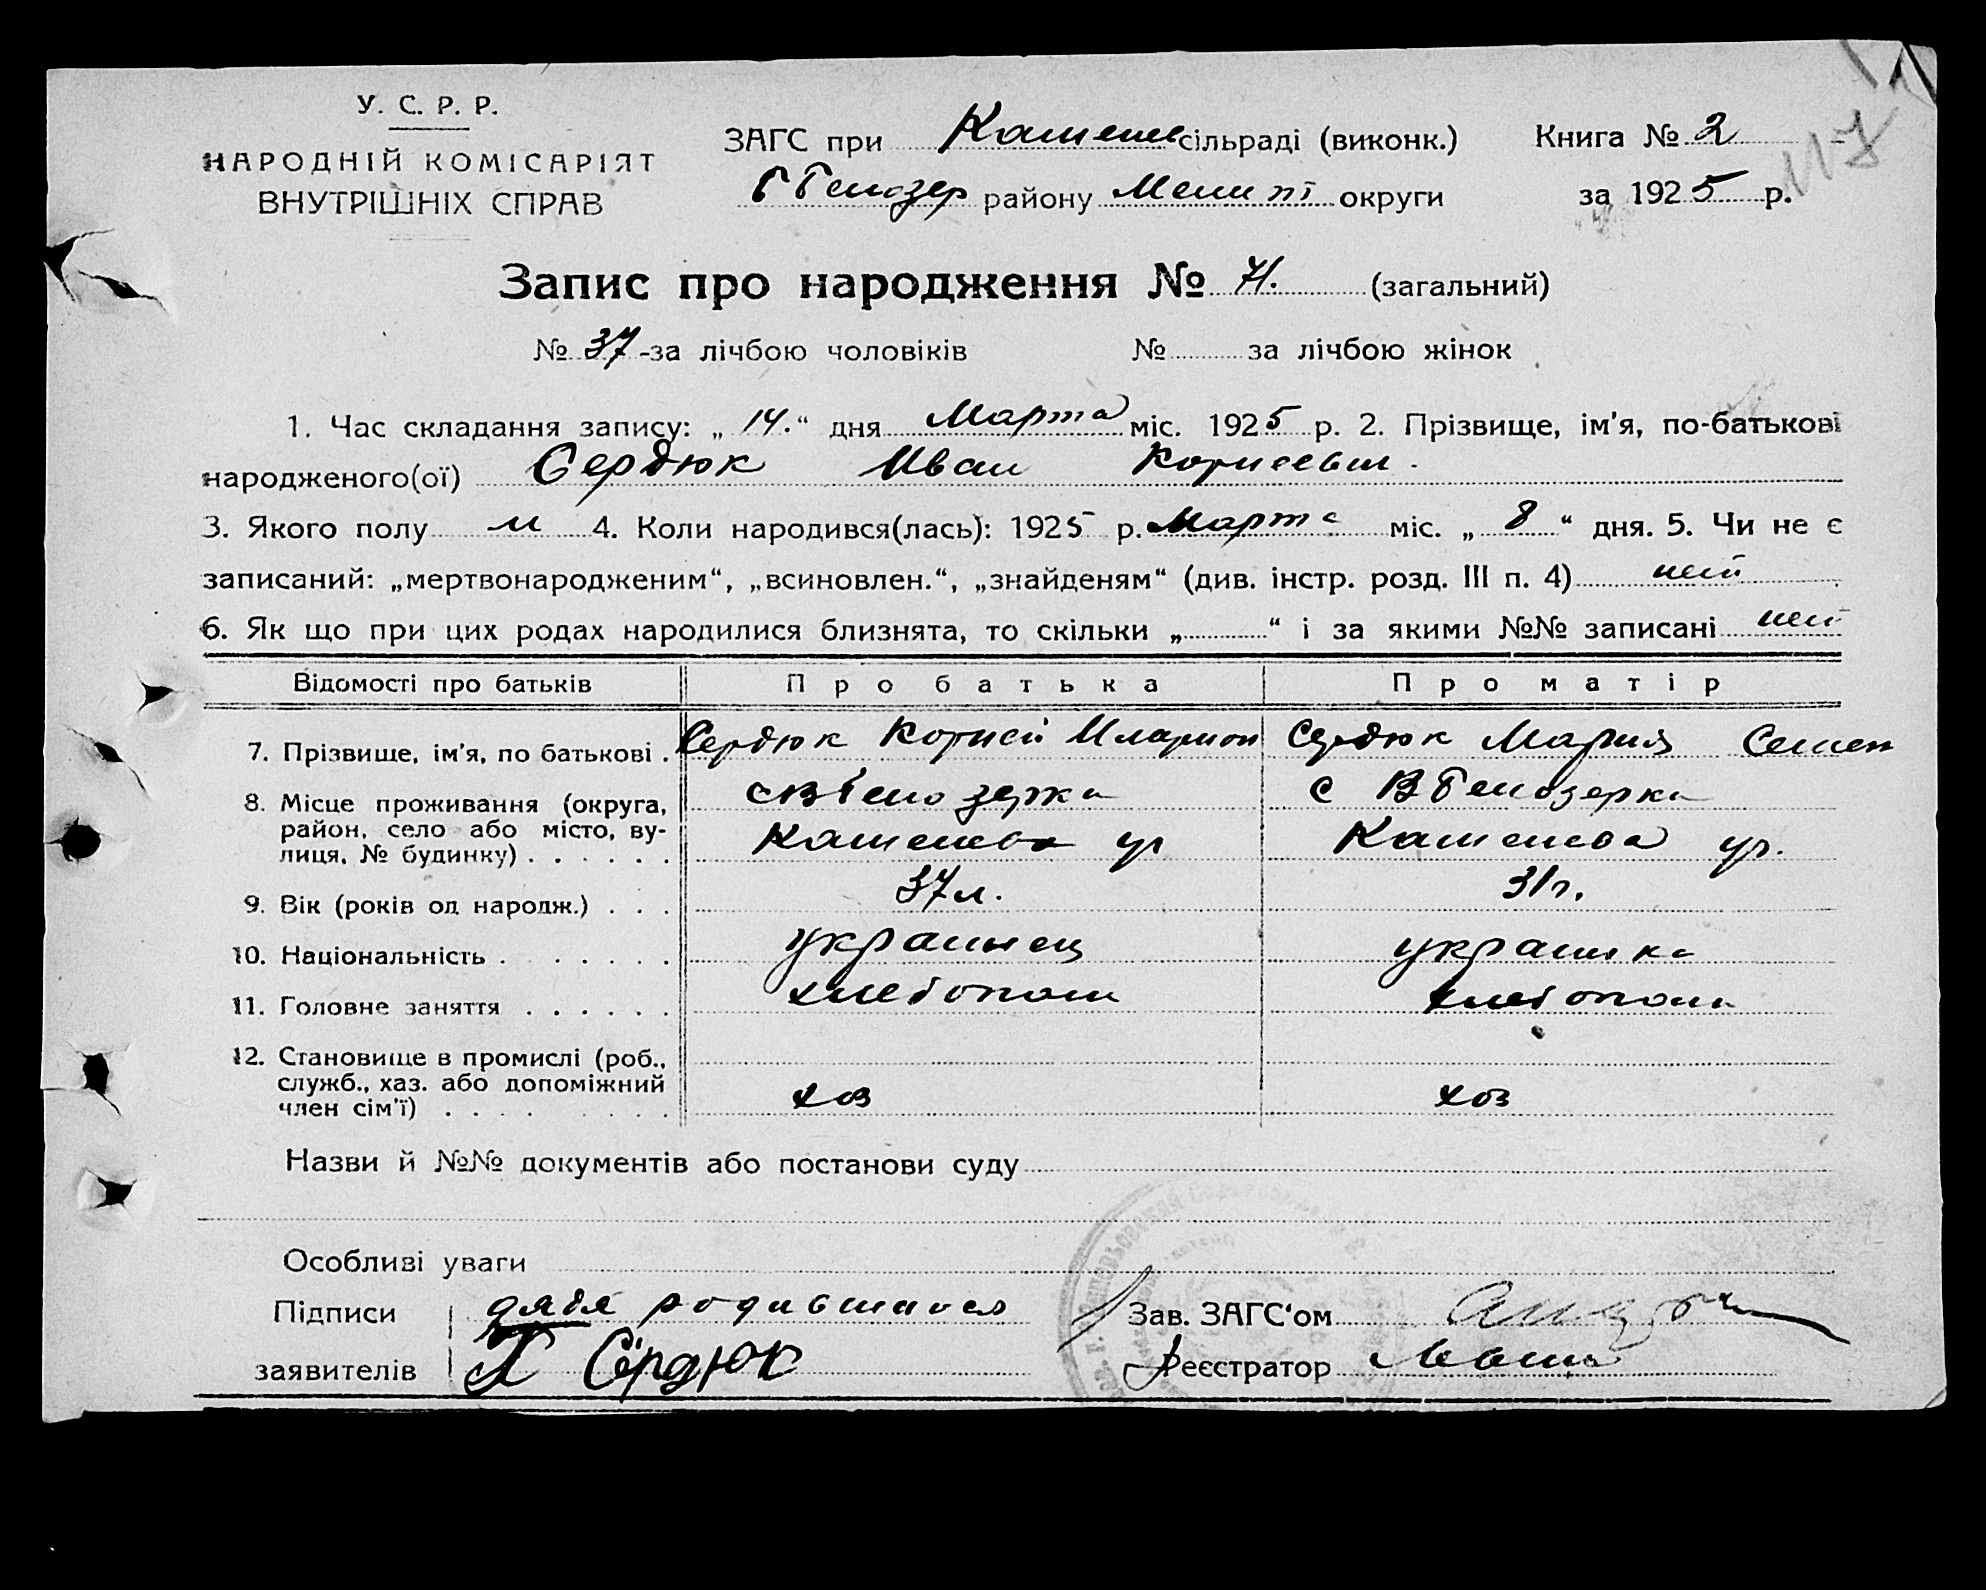 У. С. Р. Р.
НАРОДНІЙ КОМІСАРІЯТ
ВНУТРІШНІХ СПРАВ
ЗАГС при сільраді (виконк.)
району Мелит округи
Книга № 2
за 1925 р.
117
Запис про народження № 71. (загальний)
№ 37 -за лічбою чоловіків № за лічбою жінок
1. Час складання запису: „ 14. “ дня Марта міс. 1925 р. 2. Прізвище, ім'я, по-батькові
народженого(ої) Сердюк Иван Корнеевич.
3. Якого полу м 4. Коли народився(лась): 1925 р. Марта міс. „ 8 “ дня. 5. Чи не є
записаний: „мертвонародженим“, „всиновлен.“, „знайденям“ (див. інстр. розд. III п. 4) нет
6. Як що при цих родах народилися близнята, то скільки „ “ і за якими №№ записані нет
Відомості про батьків Про батька Про матір
7. Прізвище, ім'я, по батькові . Сердюк Корней Иларион Сердюк Мария Семен
8. Місце проживання (округа, с В Белозерка с В Белозерка
район, село або місто, ву-
лиця, № будинку) . . . . . . ул ул.
9. Вік (років од народж.) . . . 37 л. 31 г.
10. Національність . . . . . . украинец украинка
11. Головне заняття . . . . . . хлебопаш хлебопаш
12. Становище в промислі (роб.,
служб., хаз. або допоміжний
член сім'ї) . . . . . . . . хоз хоз
Назви й №№ документів або постанови суду
Особливі уваги
Підписи дядя родившагося Зав. ЗАГС'ом
заявителів Сердюк Реєстратор